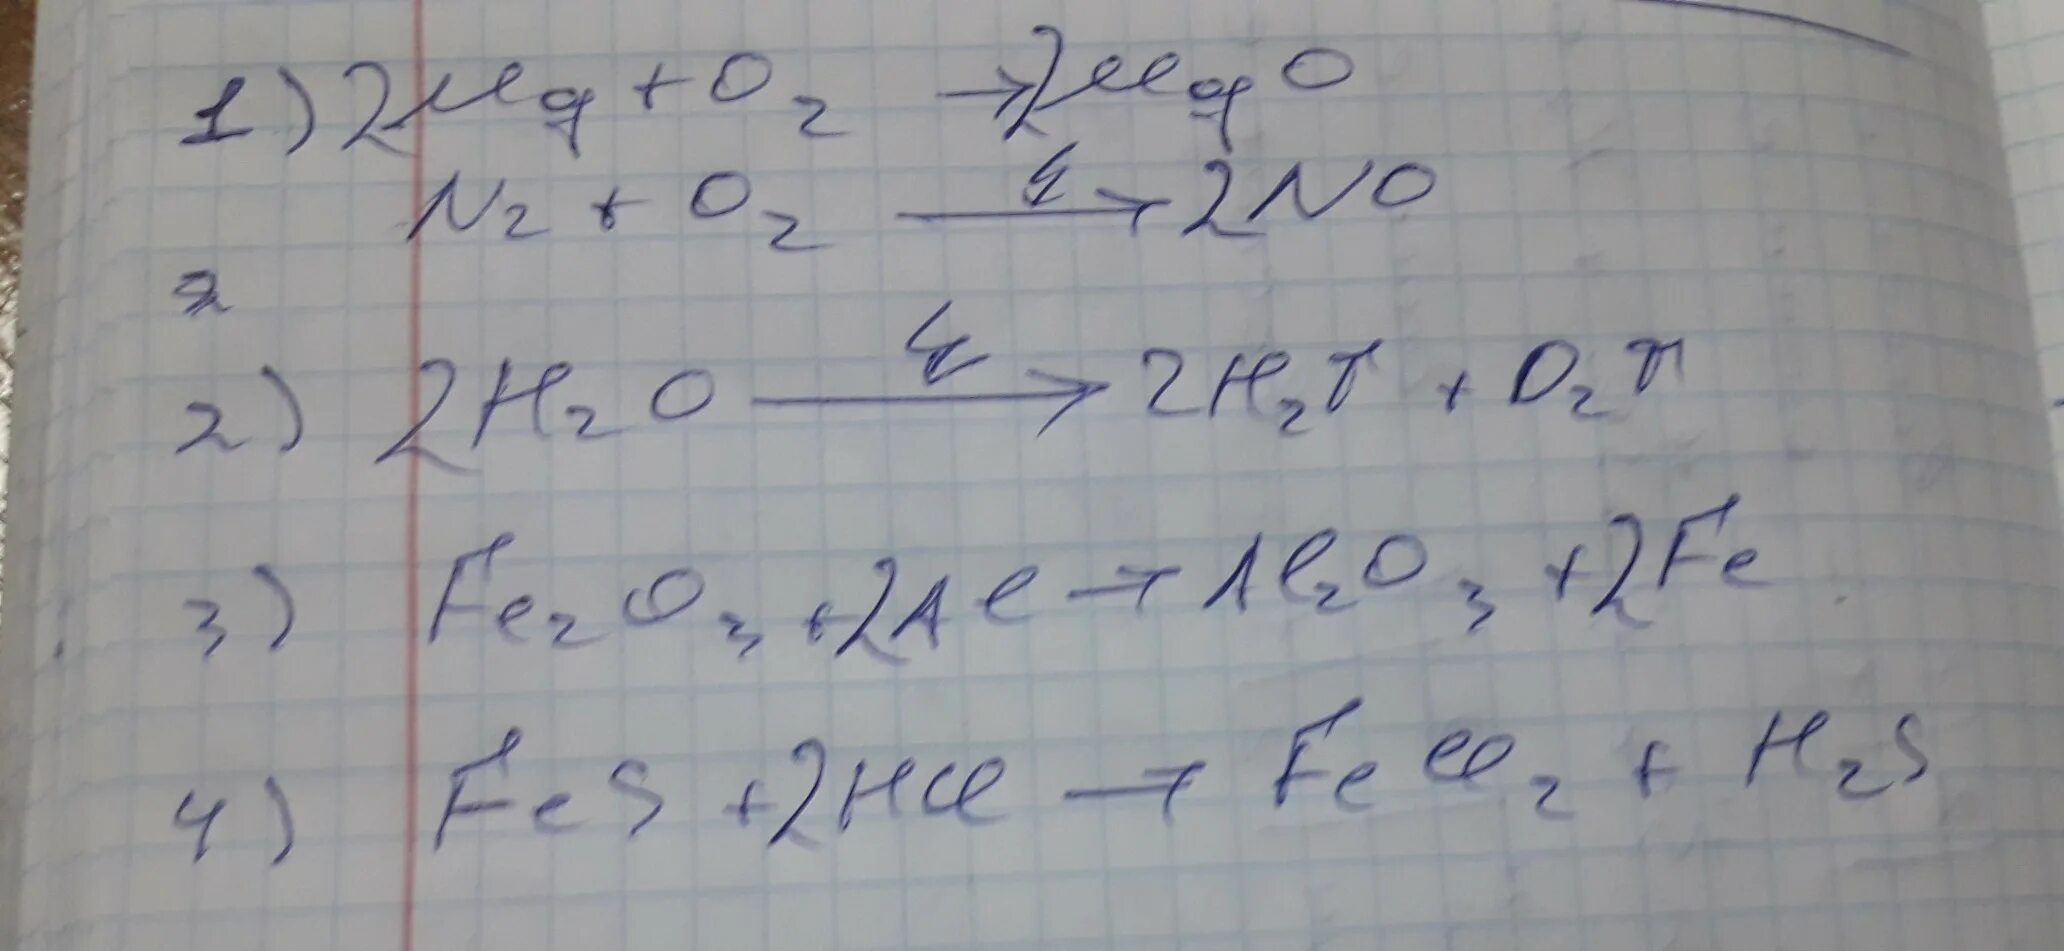 1) 2Mg + O₂ → 2MgO
N₂ + O₂ → 2NO
2) 2H₂O → 2H₂↑ + O₂↑
3) Fe₂O₃ + 2Al → Al₂O₃ + 2Fe
4) FeS + 2HCl → FeCl₂ + H₂S